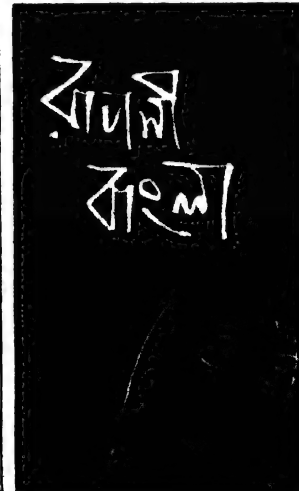 রূপসী
বাংলা